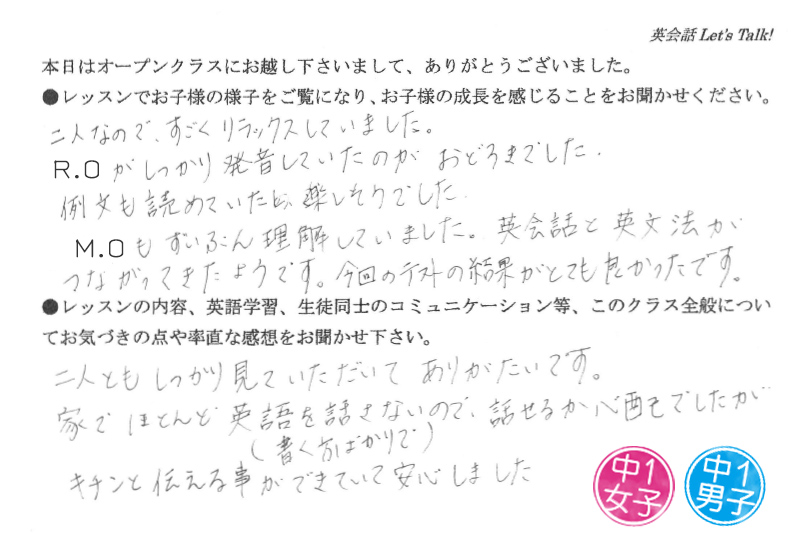 英会話 Let's Talk!
本日はオープンクラスにお越し下さいまして、ありがとうございました。
●レッスンでお子様の様子をご覧になり、お子様の成長を感じることをお聞かせください。
二人なので、すごくリラックスしていました。
R.O がしっかり発音していたのが おどろきでした.
例文も読めていたし、楽しそうでした.
M.O もずいぶん理解していました。英会話と英文法が
つながってきたようです。今回のテストの結果がとても良かったです。
●レッスンの内容、英語学習、生徒同士のコミュニケーション等、このクラス全般につい
てお気づきの点や率直な感想をお聞かせ下さい。
二人ともしっかり見ていただいて ありがたいです。
家でほとんど英語を話さないので、話せるか心配でしたが
(書く方ばかりで)
キチンと伝える事ができていて安心しました
中1
女子
中1
男子